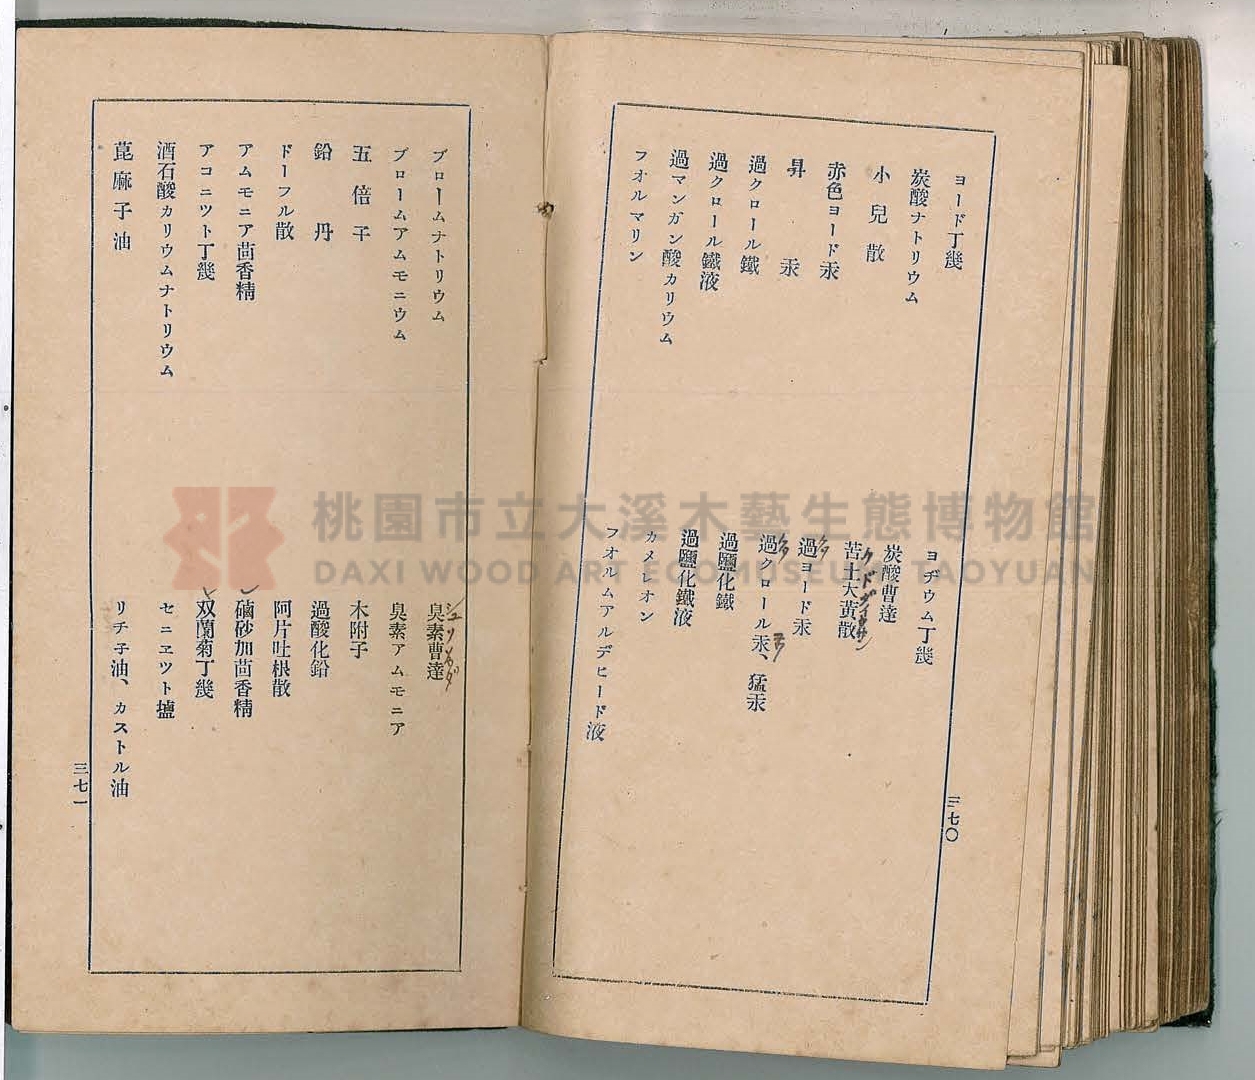 ヨード丁幾
炭酸ナトリウム
小兒散
赤色ヨード汞
昇汞
過クロール鐵
過クロール鐵液
過マンガン酸カリウム
フオルマリン
ヨヂウム丁幾
炭酸曹達
苦土大黃散
過ヨード汞
過クロール汞、猛汞
過鹽化鐵
過鹽化鐵液
カメレオン
フオルムアルデヒード液
三七〇
ブロームナトリウム
ブロームアムモニウム
五倍子
鉛丹
ドーフル散
アムモニア茴香精
アコニツト丁幾
酒石酸カリウムナトリウム
萞麻子油
臭素曹達
臭素アムモニア
木附子
過酸化鉛
阿片吐根散
磠砂加茴香精
双蘭菊丁幾
セニヱツト塩
リチ子油、カストル油
三七一
桃園市立大溪木藝生態博物館
DAXI WOOD ART ECOMUSEUM TAOYUAN